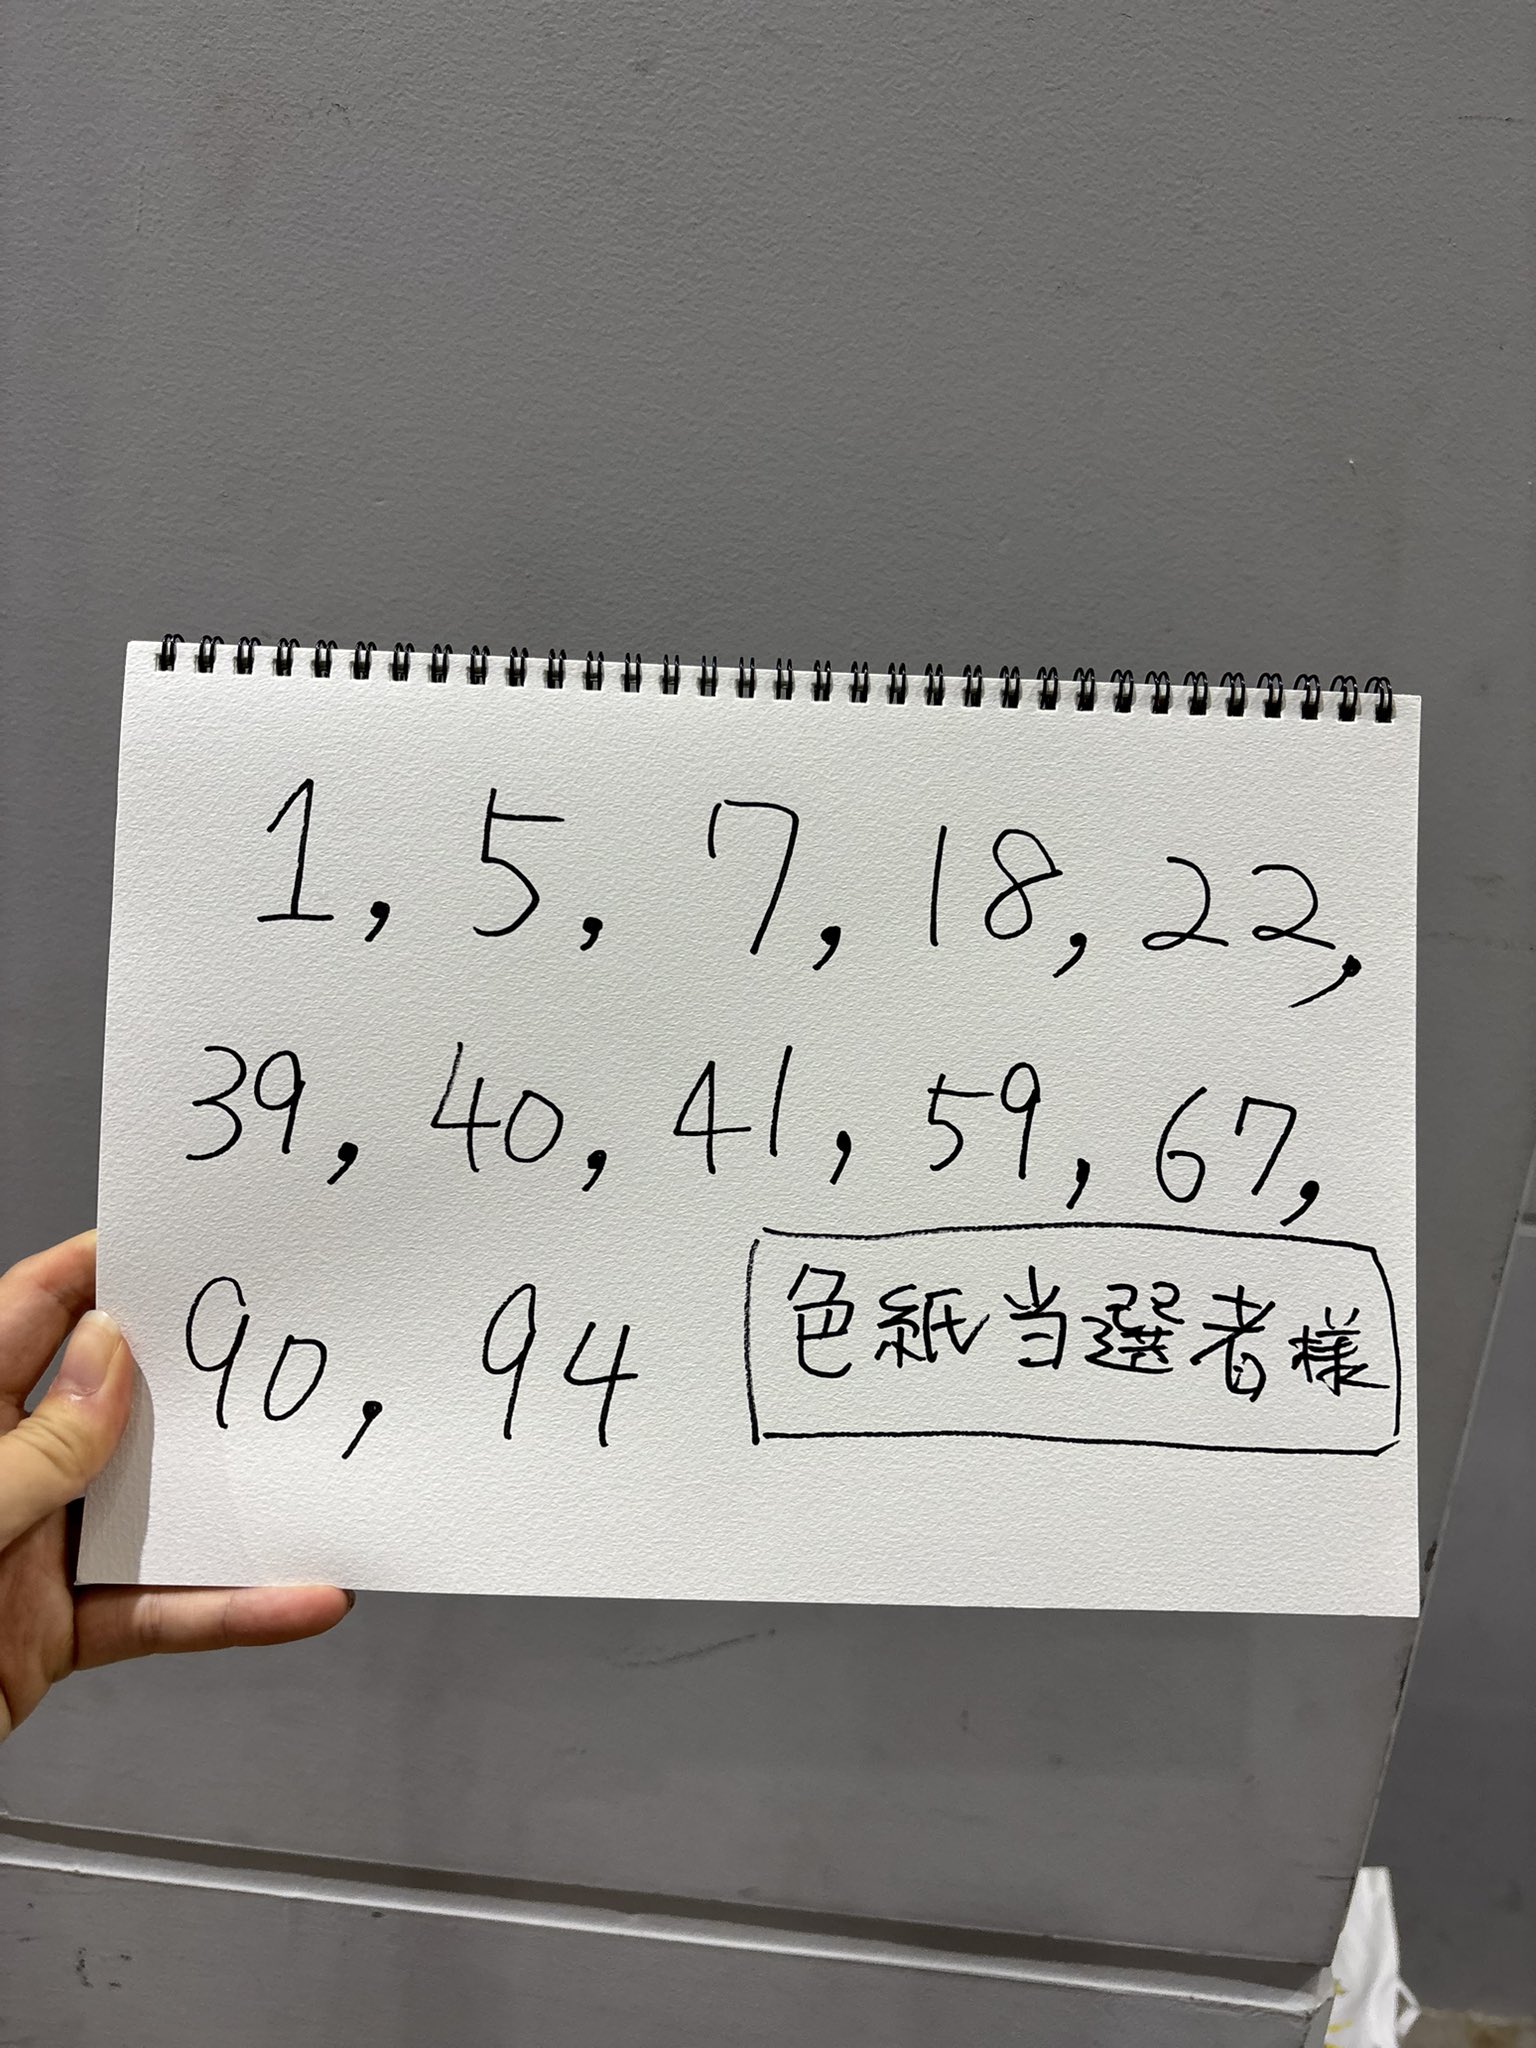 1, 5, 7, 18, 22,
39, 40, 41, 59, 67,
90, 94
色紙当選者様